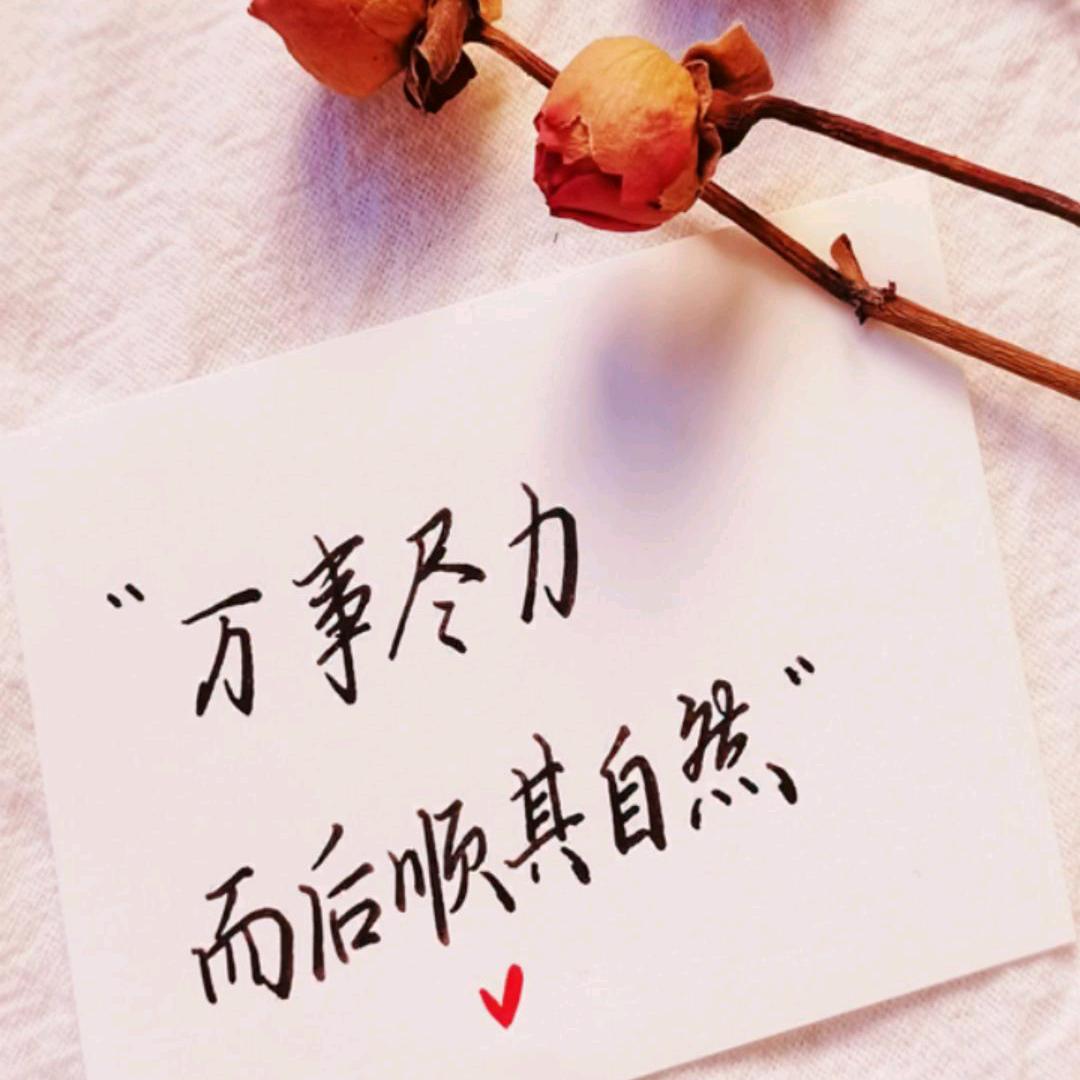 "万事尽力
而后顺其自然"